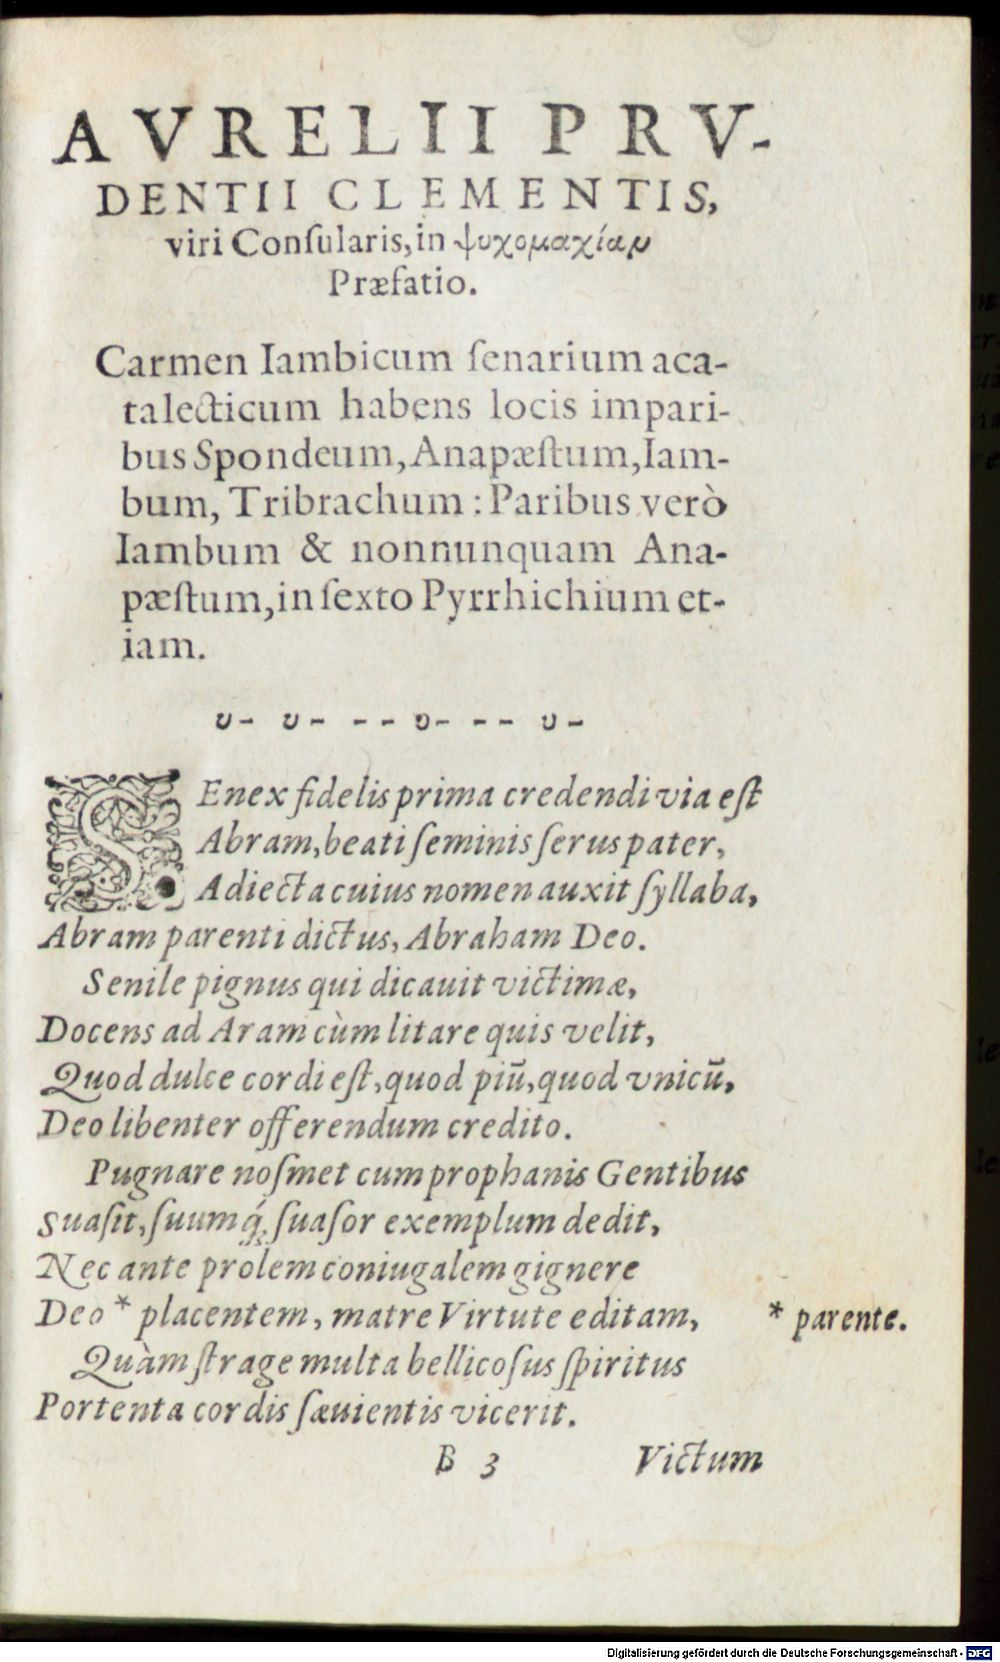 AVRELII PRV-
DENTII CLEMENTIS,
viri Conſularis, in ψυχομαχίαν
Præfatio.
Carmen Iambicum ſenarium aca-
talecticum habens locis impari-
bus Spondeum, Anapæſtum, Iam-
bum, Tribrachum: Paribus verò
Iambum & nonnunquam Ana-
pæſtum, in ſexto Pyrrhichium et-
iam.
υ- υ- -- υ- -- υ-
SEnex fidelis prima credendi via eſt
Abram, beati ſeminis ſerus pater,
Adiecta cuius nomen auxit ſyllaba,
Abram parenti dictus, Abraham Deo.
Senile pignus qui dicauit victimæ,
Docens ad Aram cùm litare quis velit,
Quod dulce cordi eſt, quod piū, quod vnicū,
Deo libenter offerendum credito.
Pugnare noſmet cum prophanis Gentibus
Suaſit, ſuumq́; ſuaſor exemplum dedit,
Nec ante prolem coniugalem gignere
Deo * placentem, matre Virtute editam, * parente.
Quàm ſtrage multa bellicoſus ſpiritus
Portenta cordis ſæuientis vicerit.
B 3 Victum
Digitalisierung gefördert durch die Deutsche Forschungsgemeinschaft - DFG